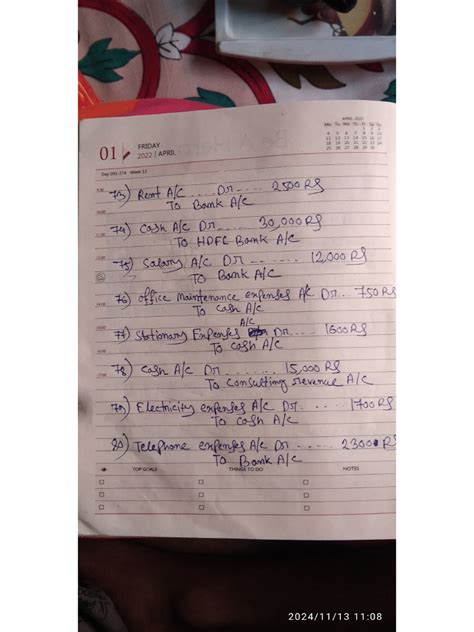 APRIL 2022
Mo Tu We Th Fr Sa Su
1 2 3
4 5 6 7 8 9 10
11 12 13 14 15 16 17
18 19 20 21 22 23 24
01
FRIDAY
2022 | APRIL
Day 091-274 Week 13
73) Rent A/C .... Dr ..... 2500 Rs
To Bank A/C
74) Cash A/C Dr ....... 30,000 Rs
To HDFC Bank A/C
75) Salary A/C Dr ........ 12,000 Rs
To Bank A/C
76) Office Maintenance expenses A/C Dr.. 750 Rs
To Cash A/C
77) Stationary Expenses A/C Dr ..... 1600 Rs
To Cash A/C
78) Cash A/C Dr ....... 15,000 Rs
To Consulting revenue A/C
79) Electricity expenses A/C Dr ..... 1700 Rs
To Cash A/C
80) Telephone expenses A/C Dr ...... 2300 Rs
To Bank A/C
TOP GOALS THINGS TO DO NOTES
2024/11/13 11:08